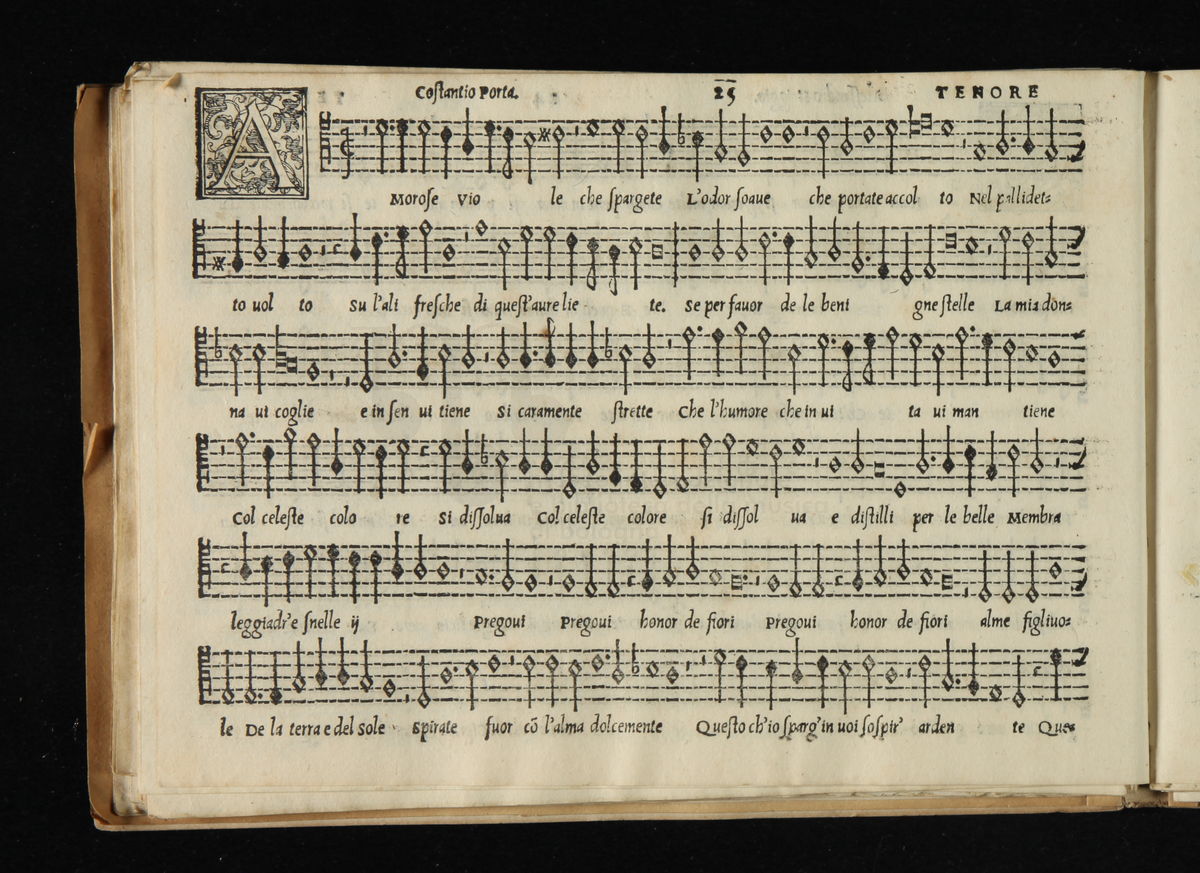 Costantio Porta. 25 TENORE
AMorose Vio le che spargete L'odor soaue che portate accol to Nel pallidet=
to uol to Su l'ali fresche di quest'aure lie te. Se per fauor de le beni gne stelle La mia don=
na ui coglie e in sen ui tiene Si caramente strette Che l'humore che in ui ta ui man tiene
Col celeste colo re Si dissolua Col celeste colore si dissol ua e distilli per le belle Membra
leggiadr'e snelle ij Pregoui Pregoui honor de fiori Pregoui honor de fiori alme figliuo=
le De la terra e del Sole Spirate fuor cõ l'alma dolcemente Questo ch'io sparg'in uoi sospir' arden te Que=